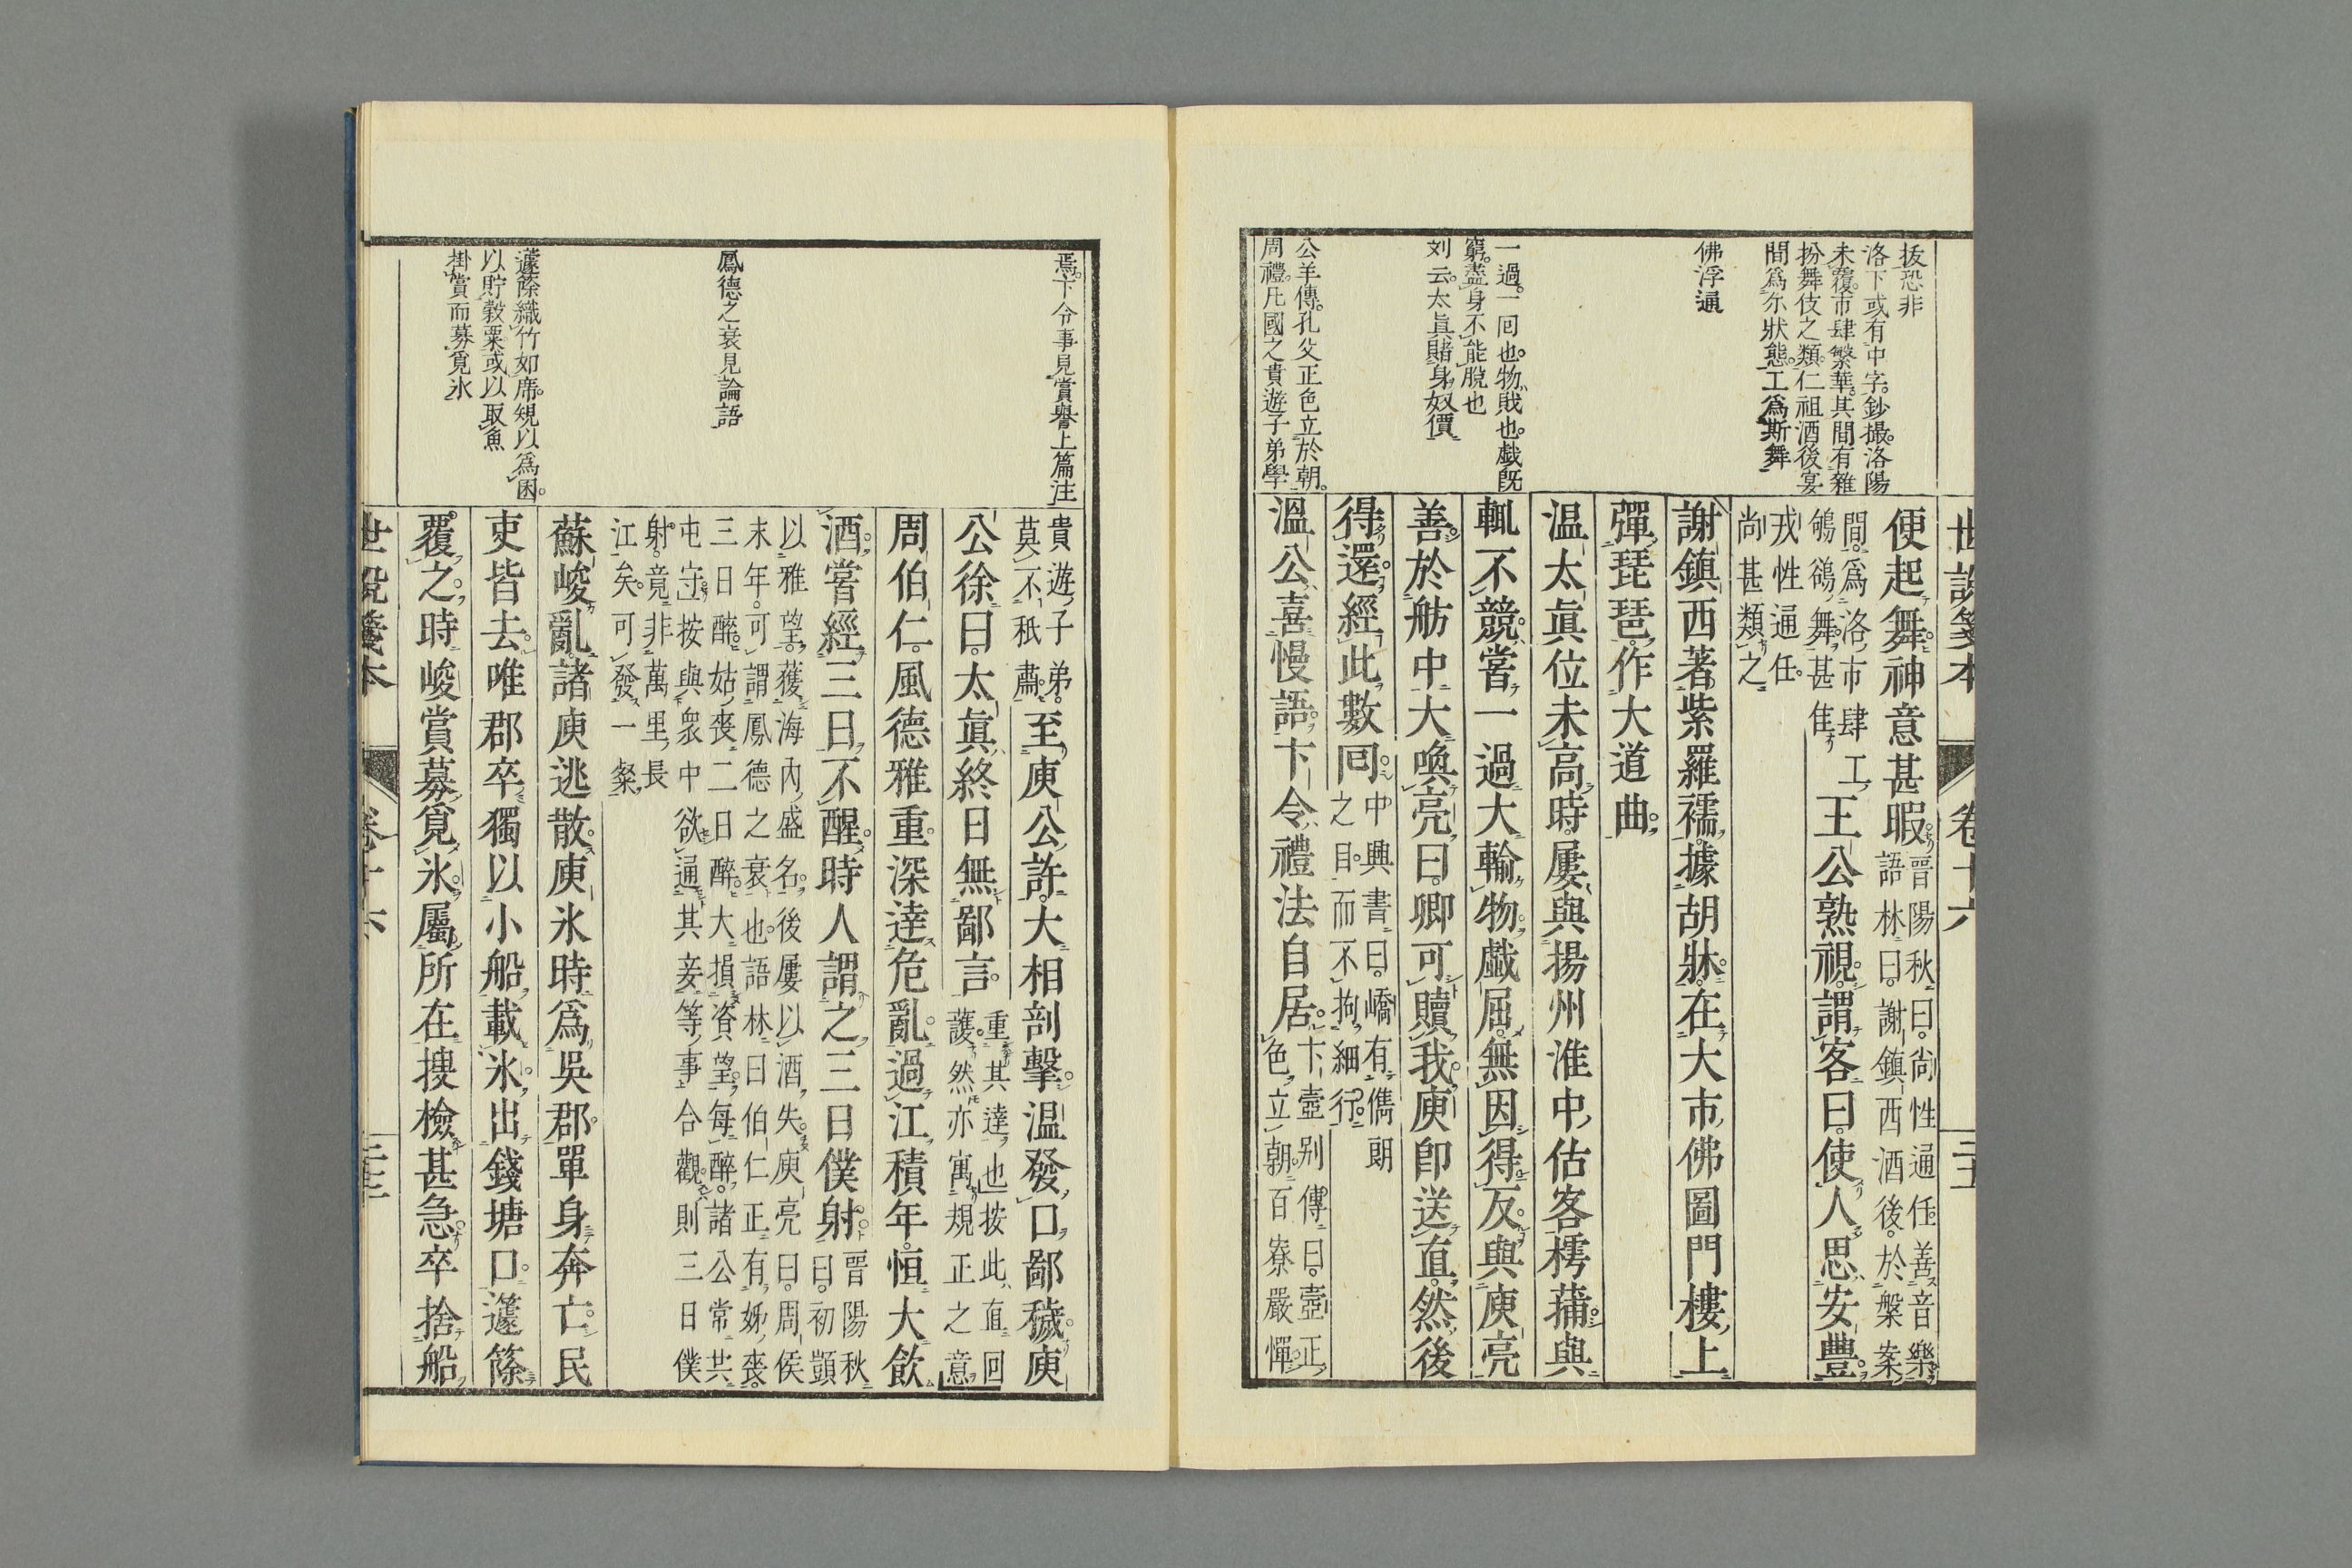 世說箋本
卷十六
二十五
抜恐非
洛下或有中字。鈔撮。洛陽
未覆。市肆繁華。其間有雜
扮舞伎之類。仁祖酒後宴
間爲尓狀態。工爲斯舞
佛浮通
一過。一囘也。物、戝也。戱旣
窮盡身不能脫也
刘云。太眞賭身奴價
公羊傳。孔父正色立於朝。
周禮。凡國之貴遊子弟學
便起舞。神意甚暇。
晋陽秋曰。尙性通任。善音樂。
語林曰。謝鎮西酒後。於槃案
間。爲洛市肆工
鴝鵒舞。甚佳。
王公熟視。謂客曰。使人思安豐。
戎性通任。
尙甚類之
謝鎮西著紫羅襦。據胡牀。在大市佛圖門樓上
彈琵琶。作大道曲。
温太眞位未高時。屢與揚州淮中估客樗蒱。與
輒不競。嘗一過大輸物。戱屈。無因得反。與庾亮
善。於舫中大喚亮曰。卿可贖我。庾卽送直。然後
得還。經此數囘。
中興書曰。嶠有儁朗
之目。而不拘細行。
溫公喜慢語。卞令禮法自居。
卞壼别傳曰。壼正
色立朝。百寮嚴憚。
焉。卞令事見賞譽上篇注
鳳德之衰見論語
蘧蒢織竹如席。䂓以爲囷。
以貯穀粟。或以取魚
掛賞而募覓氷
貴遊子弟。
莫不秖肅。
至庾公許。大相剖擊。温發口鄙穢。庾
公徐曰。太眞終日無鄙言。
重其達也。按此直回
護。然亦寓規正之意
周伯仁。風德雅重。深達危亂。過江積年。恒大飲
酒。嘗經三日不醒。時人謂之三日僕射。
晋陽秋
曰。初顗
以雅望。獲海內盛名。後屢以酒失。庾亮曰。周侯
末年。可謂鳳德之衰也。語林曰。伯仁正有姊喪。
三日醉。姑喪。二日醉。大損資望。每醉。諸公常共
屯守。按與衆中欲通其妾等事合觀。則三日僕
射。竟非萬里長
江矣。可發一粲
蘇峻亂。諸庾逃散。庾氷時爲吳郡。單身奔亡。民
吏皆去。唯郡卒獨以小船載氷。出錢塘口。蘧篨
覆之。時峻賞募覓氷。屬所在搜檢甚急。卒捨船
世說箋本
卷十六